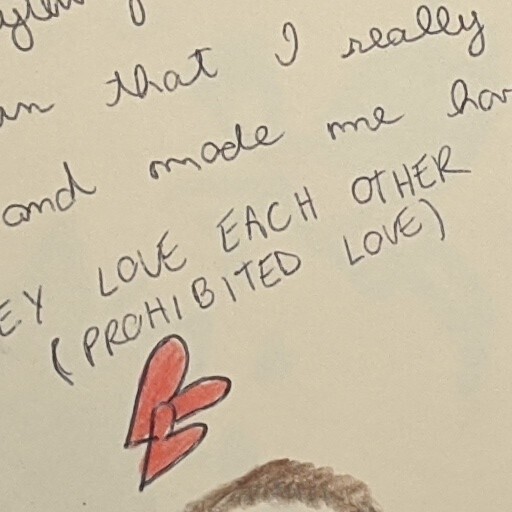 that I really
and made me
LOVE EACH OTHER
(PROHIBITED LOVE)